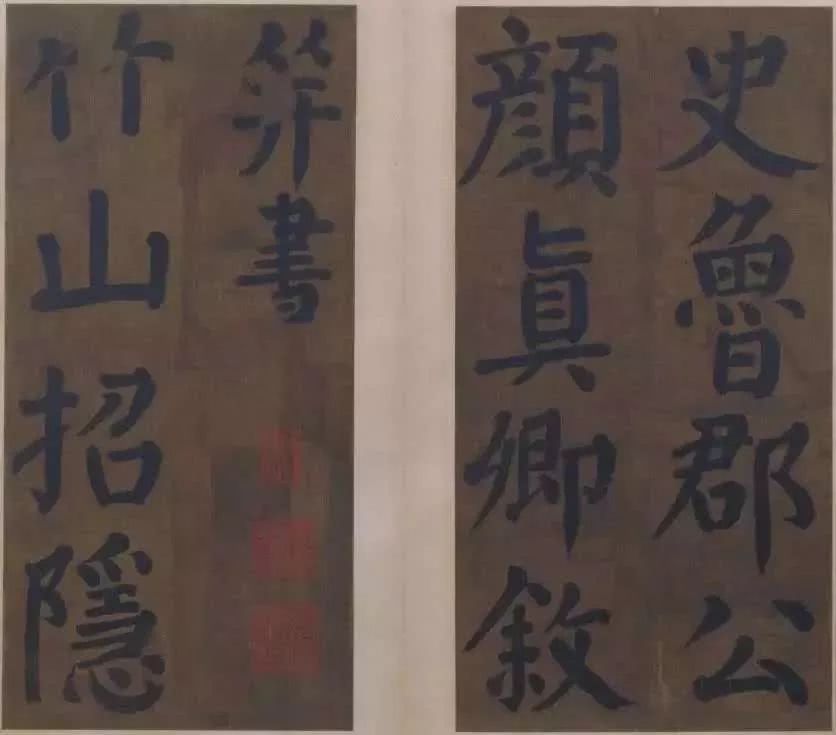 史魯郡公
顏眞卿敘
筓書
竹山招隱